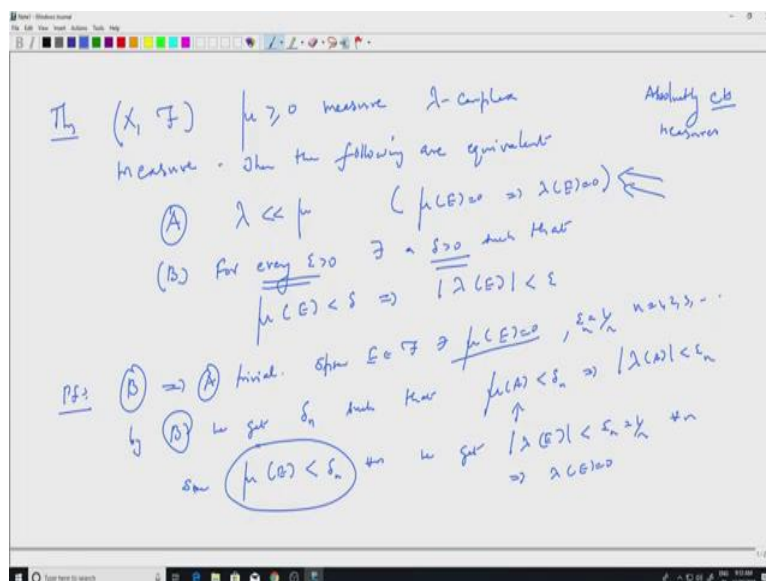 Note1 - Windows Journal
File Edit View Insert Actions Tools Help
Th (X, F) μ ≥ 0 measure λ-complex
Absolutely cts
measures
measure. Then the following are equivalent
(A) λ << μ ( μ(E)=0 => λ(E)=0 )
(B) For every ε>0 ∃ a δ>0 such that
μ(E) < δ => |λ(E)| < ε
Pf: (B) => (A) trivial. E ∈ F ∋ μ(E)=0, ε_n = 1/n n=1,2,3,...
by (B) we get δ_n such that μ(A) < δ_n => |λ(A)| < ε_n
μ(E) < δ_n ∀n we get |λ(E)| < ε_n = 1/n ∀n
=> λ(E)=0
Type here to search